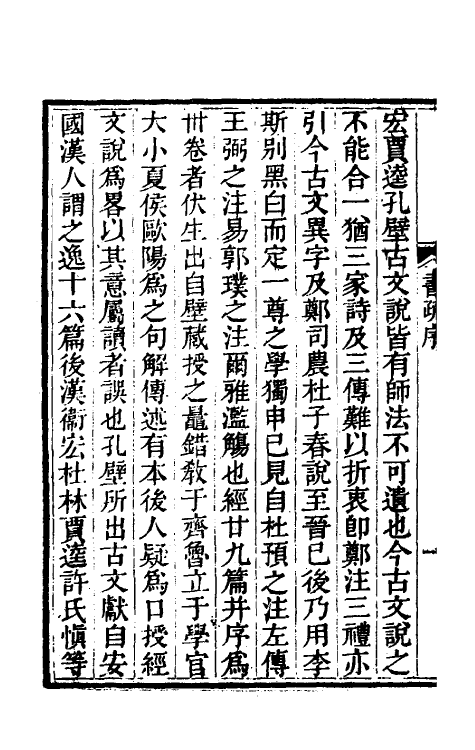 書疏序
一
宏賈逵孔壁古文說皆有師法不可遺也今古文說之
不能合一猶三家詩及三傳難以折衷卽鄭注三禮亦
引今古文異字及鄭司農杜子春說至晉已後乃用李
斯别黑白而定一尊之學獨申已見自杜預之注左傳
王弼之注易郭璞之注爾雅濫觴也經廿九篇并序爲
卅卷者伏生出自壁藏授之鼂錯敎于齊魯立于學官
大小夏侯歐陽爲之句解傳述有本後人疑爲口授經
文說爲畧以其意屬讀者誤也孔壁所出古文獻自安
國漢人謂之逸十六篇後漢衞宏杜林賈逵許氏愼等